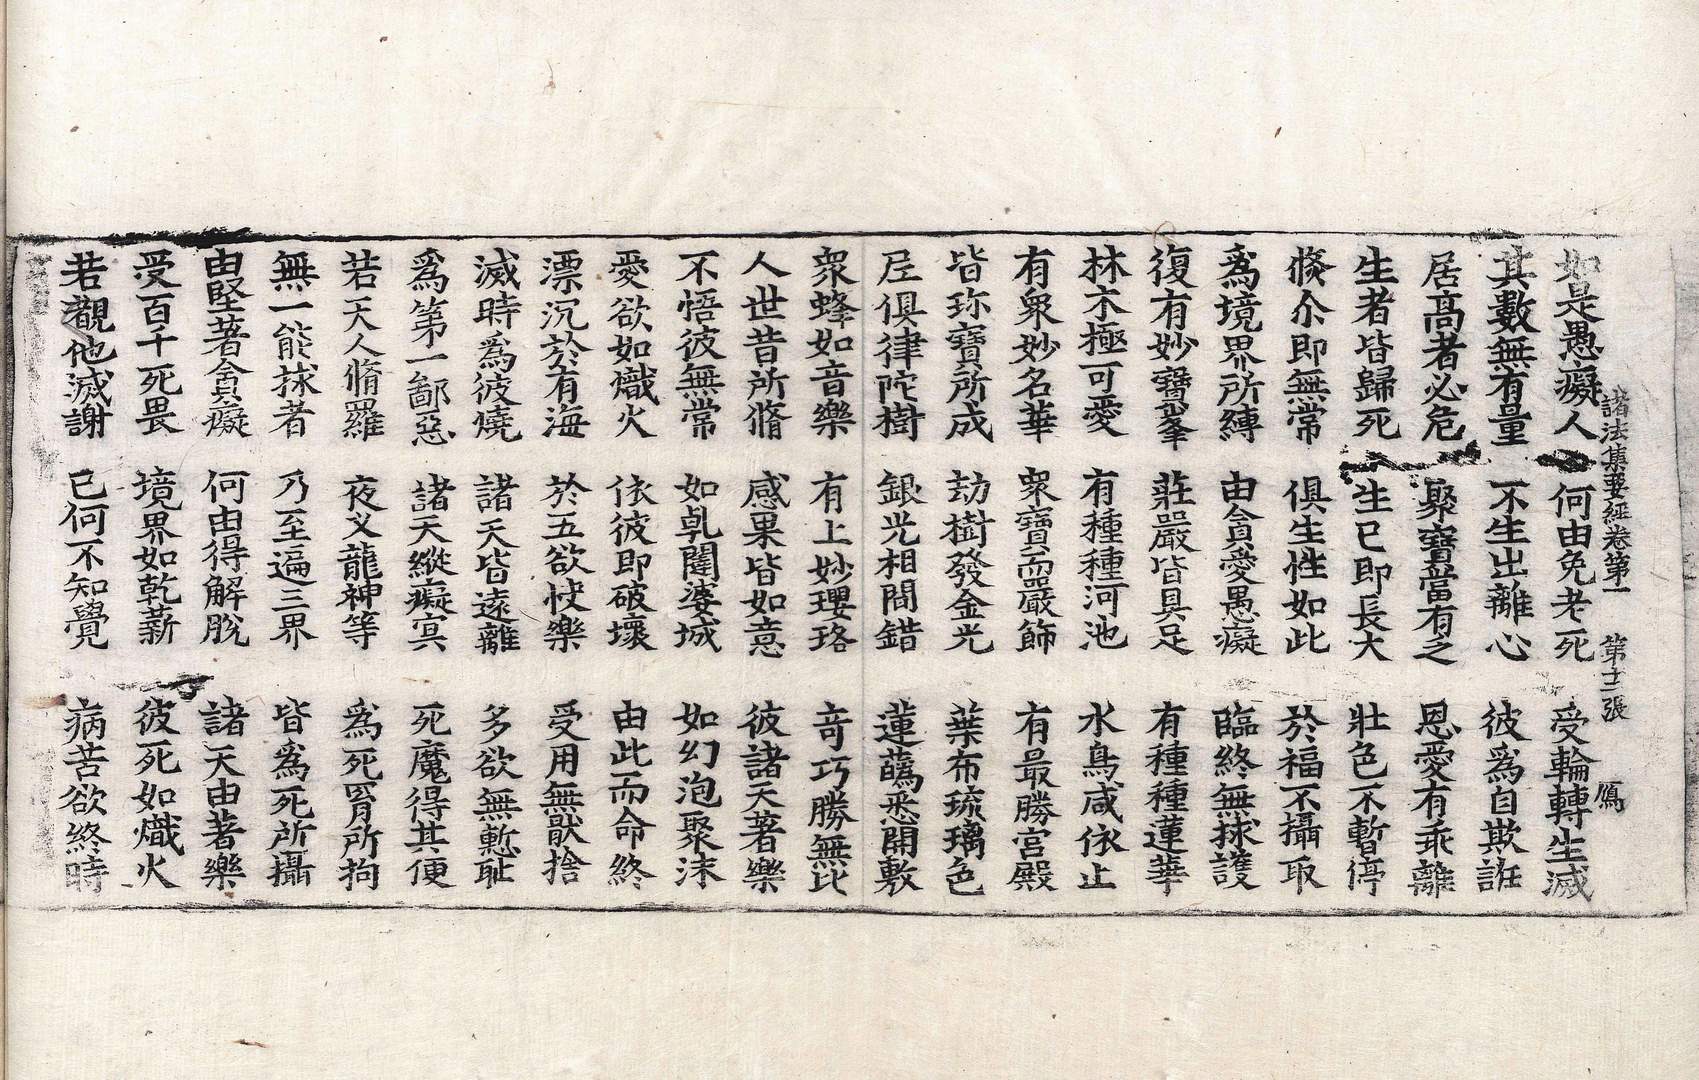 諸法集要經卷第一 第十二張 鴈
如是愚癡人 何由免老死 受輪轉生滅
其數無有量 不生出離心 彼爲自欺誑
居高者必危 聚寶當有乏 恩愛有乖離
生者皆歸死 生已即長大 壯色不暫停
倏尒即無常 俱生性如此 於福不攝取
爲境界所縛 由貪愛愚癡 臨終無捄護
復有妙寶峯 莊嚴皆具足 有種種蓮華
林木極可愛 有種種河池 水鳥咸依止
有衆妙名華 衆寶而嚴飾 有最勝宮殿
皆珎寶所成 劫樹發金光 葉布琉璃色
尼俱律陀樹 銀光相間錯 蓮蘤悉開敷
衆蜂如音樂 有上妙瓔珞 奇巧勝無比
人世昔所脩 感果皆如意 彼諸天著樂
不悟彼無常 如乹闥婆城 如幻泡聚沫
愛欲如熾火 依彼即破壞 由此而命終
漂沉於有海 於五欲快樂 受用無猒捨
滅時爲彼燒 諸天皆遠離 多欲無慙耻
爲第一鄙惡 諸天縱癡冥 死魔得其便
若天人脩羅 夜叉龍神等 爲死罥所拘
無一能捄者 乃至遍三界 皆爲死所攝
由堅著貪癡 何由得解脫 諸天由著樂
受百千死畏 境界如乾薪 彼死如熾火
若觀他滅謝 已何不知覺 病苦欲終時